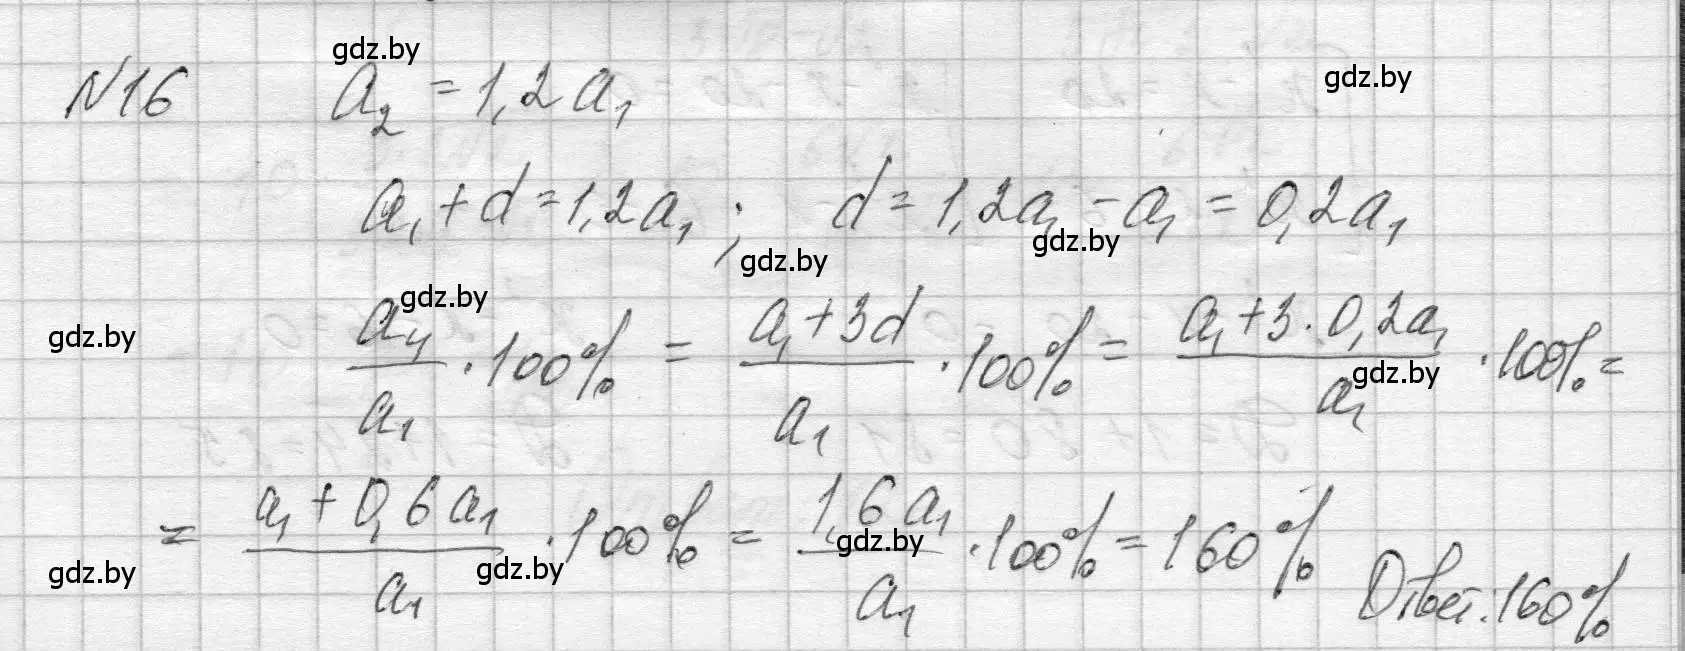 gdz.by
№16 a₂ = 1,2a₁
gdz.by
a₁ + d = 1,2a₁ ; d = 1,2a₁ - a₁ = 0,2a₁
gdz.by gdz.by
gdz.by
gdz.by
a₄/a₁ · 100% = (a₁ + 3d)/a₁ · 100% = (a₁ + 3 · 0,2a₁)/a₁ · 100% =
gdz.by
= (a₁ + 0,6a₁)/a₁ · 100% = 1,6a₁/a₁ · 100% = 160%
gdz.by
gdz.by gdz.by
Ответ: 160%